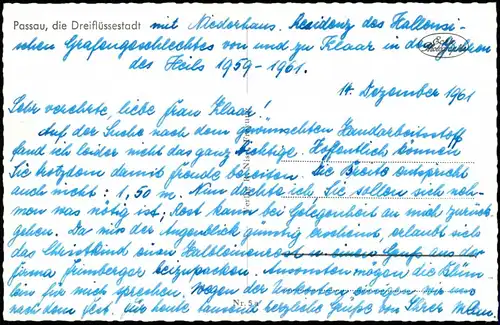 Passau, die Dreiflüssestadt mit Niederhaus. Residenz des Hallensi-
schen Grafengeschlechtes von und zu Klaar in den Jahren
des Heils 1959-1961.
14. Dezember 1961
Sehr verehrte, liebe Frau Klaar!
Auf der Suche nach dem gewünschten Handarbeitsstoff
fand ich leider nicht das ganz Richtige. Hoffentlich können
Sie trotzdem damit Freude bereiten. Die Breite entspricht
auch nicht: 1,50 m. Nun dachte ich, Sie sollen sich neh-
men was nötig ist; Rest kann bei Gelegenheit an mich zurück
gehen. Da mir der Augenblick günstig erscheint, erlaubt sich
das Christkind einen Halbleinenrest aus der
Firma Grimberger beizupacken. Ansonsten mögen die Blüm-
lein für mich sprechen. Wegen der Unkosten einigen wir uns
nach dem Fest. Für heute tausend herzliche Grüße von Ihrer
Nr. 5a